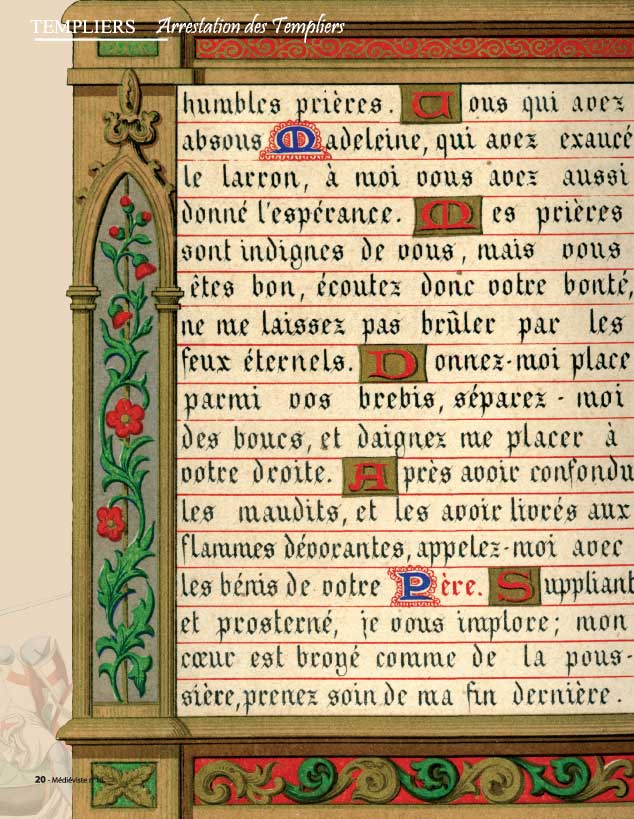 TEMPLIERS Arrestation des Templiers
humbles prières. Vous qui avez
absous Madeleine, qui avez exaucé
le larron, à moi vous avez aussi
donné l'espérance. Mes prières
sont indignes de vous, mais vous
êtes bon, écoutez donc votre bonté,
ne me laissez pas brûler par les
feux éternels. Donnez-moi place
parmi vos brebis, séparez-moi
des boucs, et daignez me placer à
votre droite. Après avoir confondu
les maudits, et les avoir livrés aux
flammes dévorantes, appelez-moi avec
les bénis de votre Père. Suppliant
et prosterné, je vous implore; mon
cœur est broyé comme de la pous-
sière, prenez soin de ma fin dernière.
20 - Médiéviste